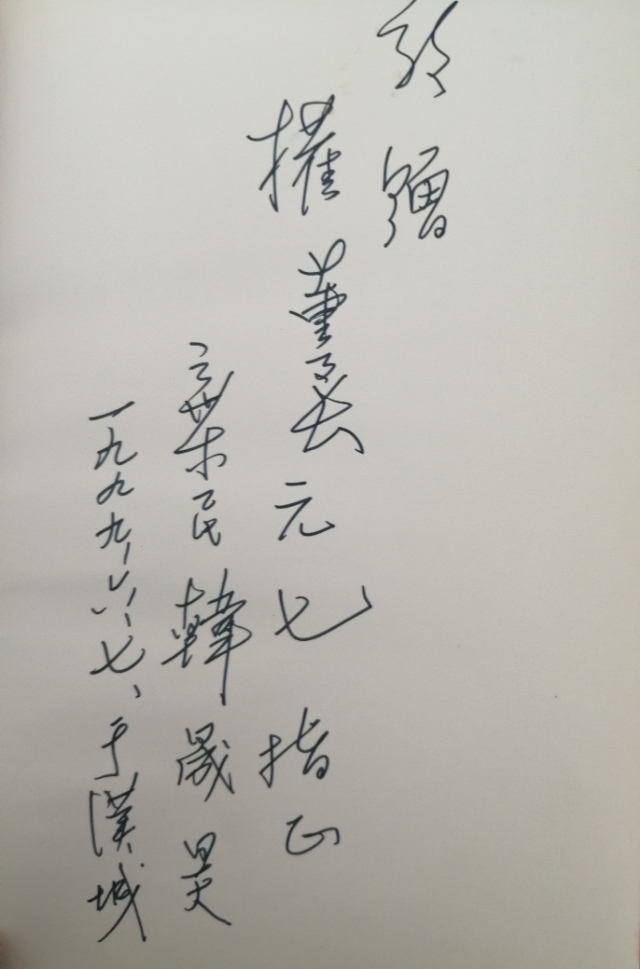 敬贈
權董事长元七指正
棄民韓晟昊
一九九九、六、七、于漢城